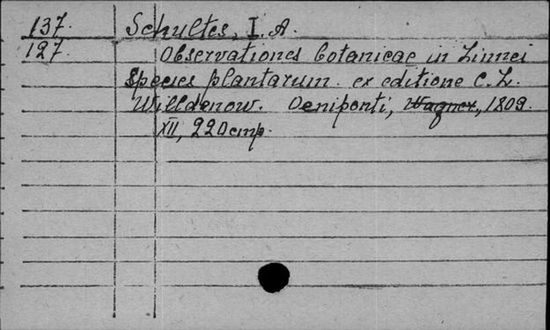 137. Schultes, I. A.
127. Observationes botanicae in Linnei
Species plantarum ex editione C. L.
Willdenow. Oeniponti, Wagner, 1809.
XII, 220 стр.